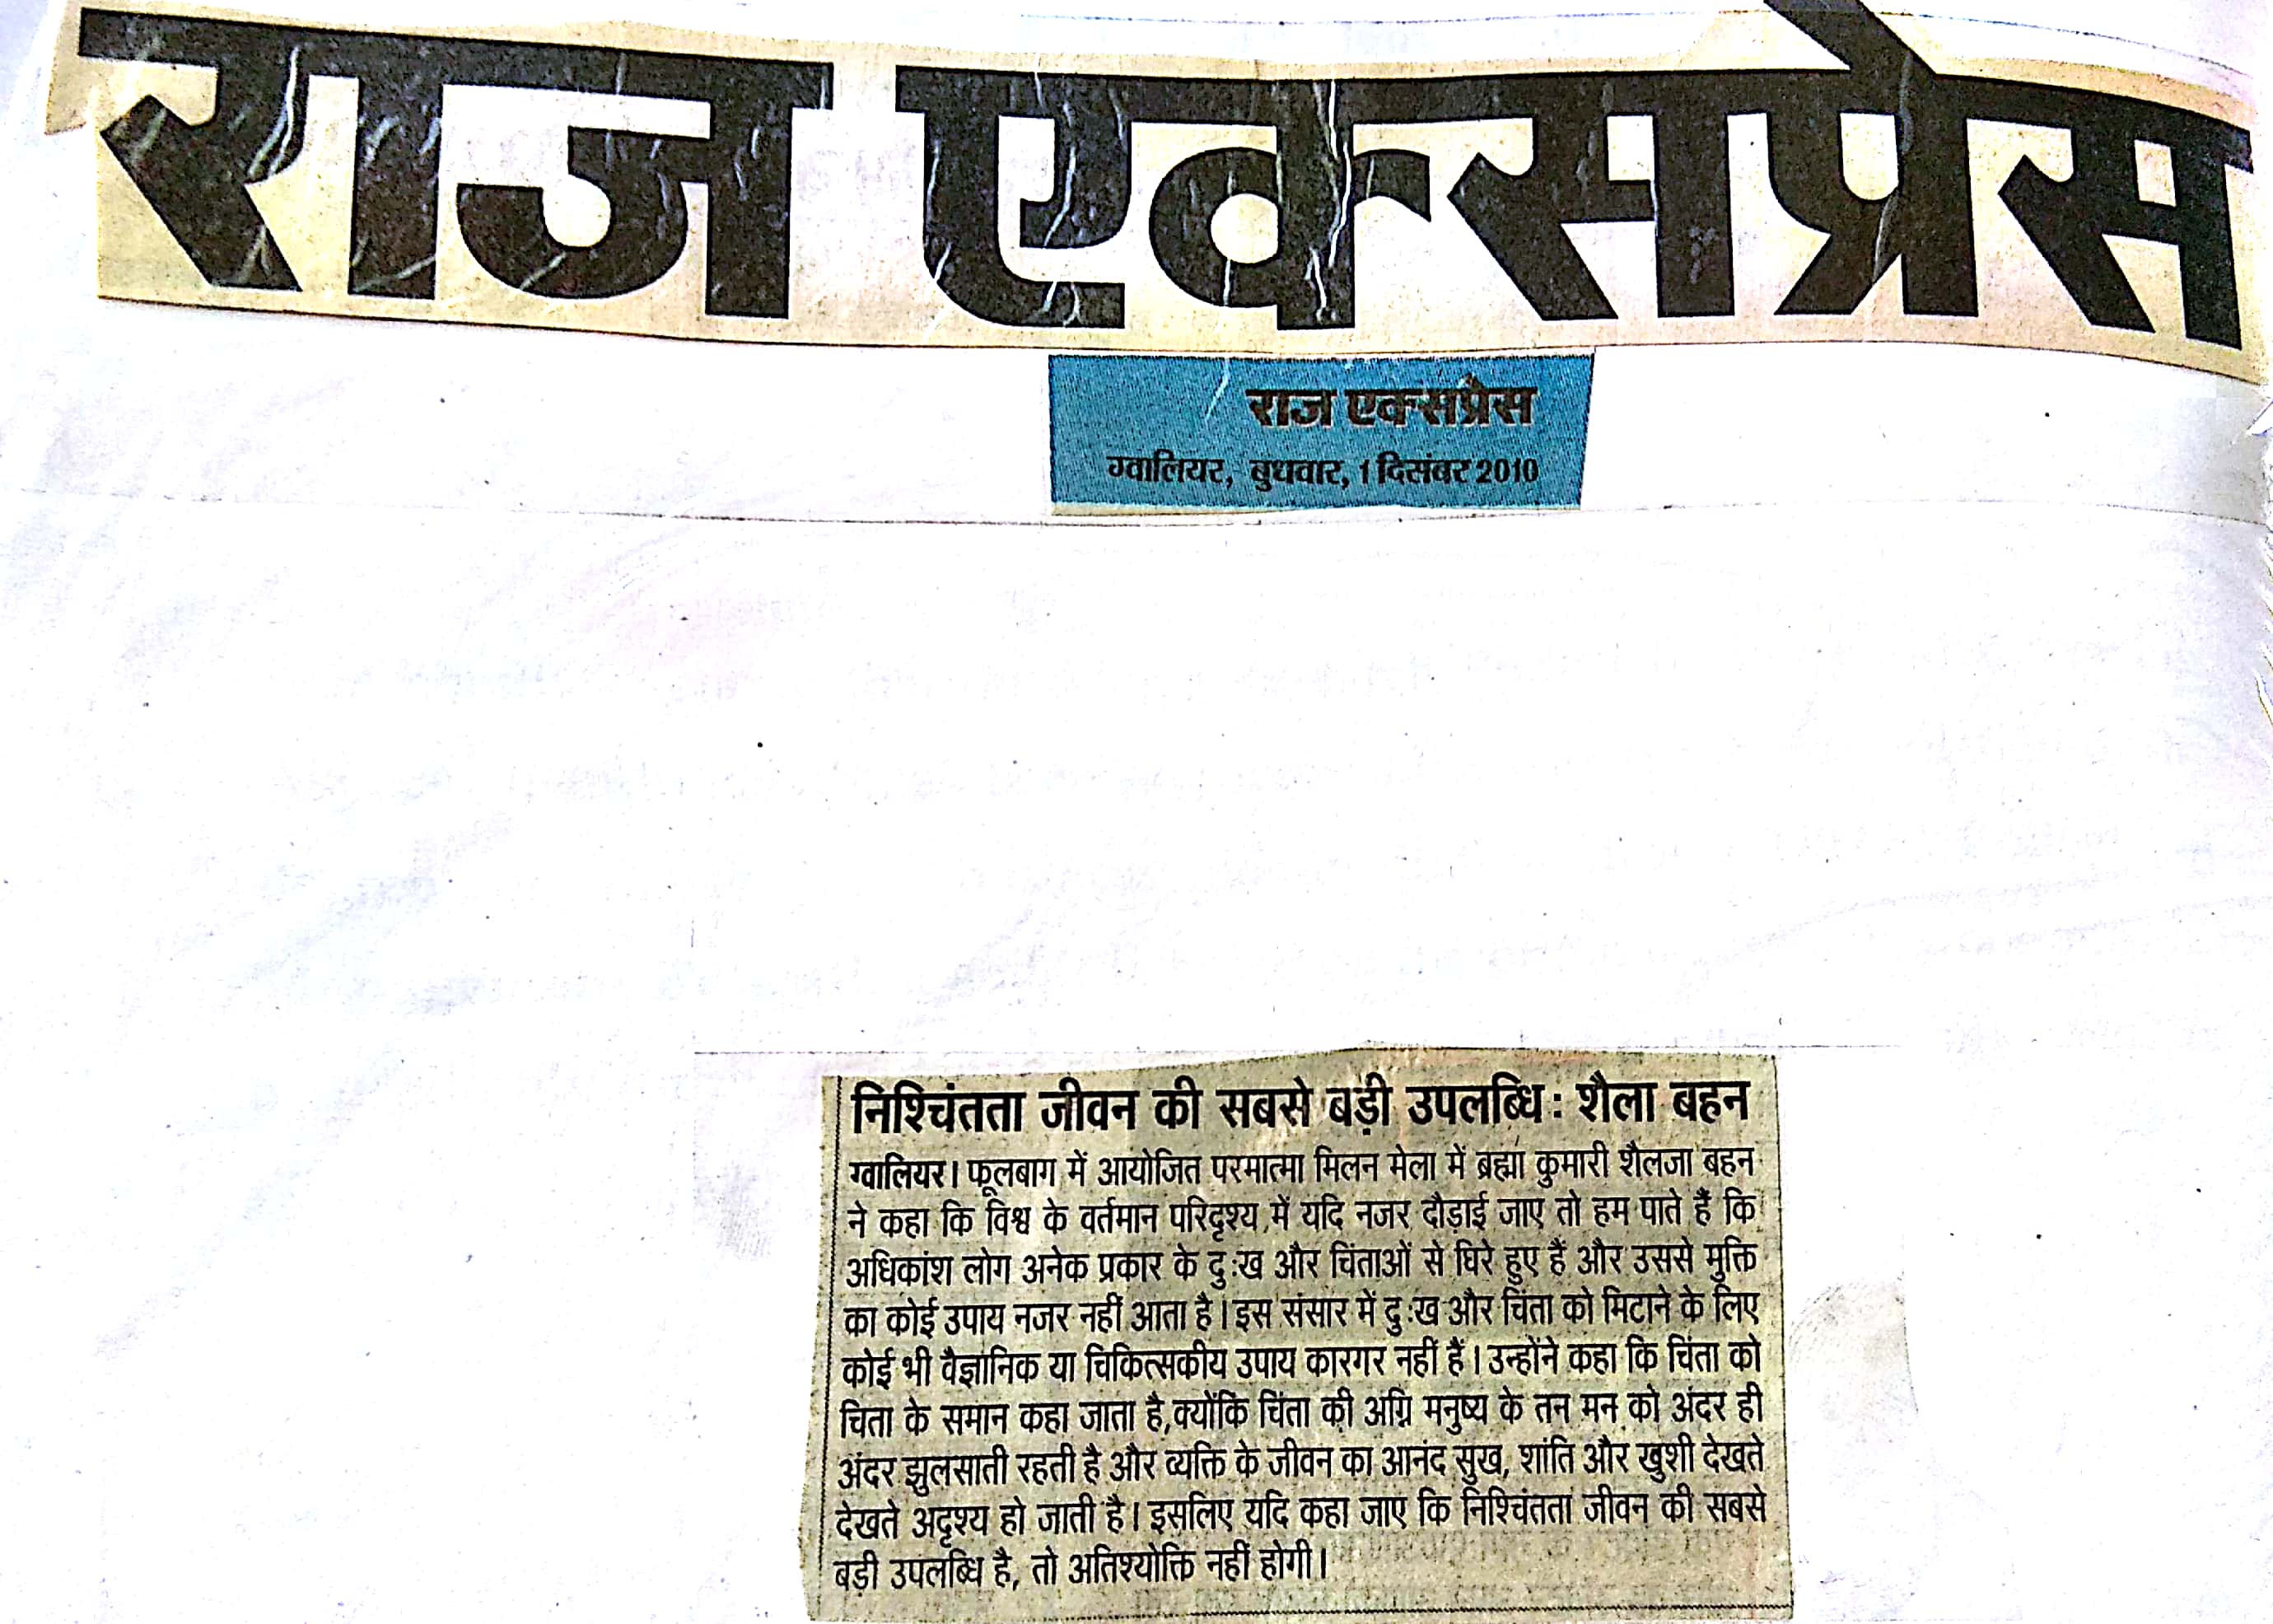 राज एक्सप्रेस
राज एक्सप्रेस
ग्वालियर, बुधवार, 1 दिसंबर 2010
निश्चिंतता जीवन की सबसे बड़ी उपलब्धि : शैला बहन
ग्वालियर। फूलबाग में आयोजित परमात्मा मिलन मेला में ब्रह्मा कुमारी शैलजा बहन
ने कहा कि विश्व के वर्तमान परिदृश्य में यदि नजर दौड़ाई जाए तो हम पाते हैं कि
अधिकांश लोग अनेक प्रकार के दु:ख और चिंताओं से घिरे हुए हैं और उससे मुक्ति
का कोई उपाय नजर नहीं आता है। इस संसार में दु:ख और चिंता को मिटाने के लिए
कोई भी वैज्ञानिक या चिकित्सकीय उपाय कारगर नहीं हैं। उन्होंने कहा कि चिंता को
चिता के समान कहा जाता है,क्योंकि चिंता की अग्नि मनुष्य के तन मन को अंदर ही
अंदर झुलसाती रहती है और व्यक्ति के जीवन का आनंद सुख, शांति और खुशी देखते
देखते अदृश्य हो जाती है। इसलिए यदि कहा जाए कि निश्चिंतता जीवन की सबसे
बड़ी उपलब्धि है, तो अतिश्योक्ति नहीं होगी।